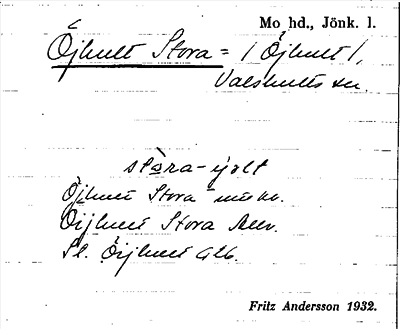 Mo hd., Jönk. l.
Öjhult Stora = (Öjhult),
Valshults sn.
stōra-ɩjolt
Öjhult Stora
Öijhult Stora
St. Öijhult Gtk.
Fritz Andersson 1932.